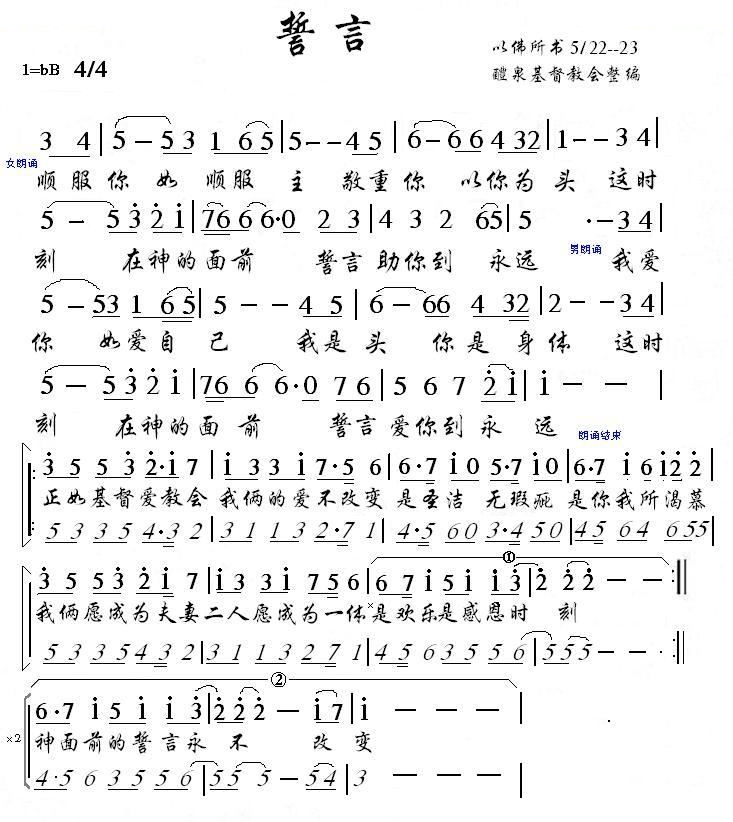 誓言
以佛所书 5/22--23
1=bB 4/4
醴泉基督教会整编
3 4 | 5 — 5 3 1 6 5 | 5 - - 4 5 | 6 — 6 6 4 32 | 1 - - 3 4 |
女朗诵
顺服你 如 顺服 主 敬重你 以你为头 这时
5 — 5 3 2 1 | 76 6 6·0 2 3 | 4 3 2 65 | 5 ·— 3 4 |
刻 在神的面前 誓言助你到 永远 男朗诵 我爱
5 — 53 1 65 | 5 — — 4 5 | 6 — 66 4 32 | 2 — — 3 4 |
你 如爱自己 我是头 你是身体 这时
5 — 5 3 2 1 | 76 6 6·0 76 | 5 6 7 2 1 | 1 — — |
刻 在神的面前 誓言爱你到永远
朗诵结束
3 5 5 3 2·1 7 | 1 3 3 1 7·5 6 | 6·7 1 0 5·7 1 0 | 6·7 1 6 12 2 |
正如基督爱教会 我俩的爱不改变 是圣洁 无瑕疵 是你我所渴慕
5 3 3 5 4·3 2 | 3 1 1 3 2·7 1 | 4·5 6 0 3·4 5 0 | 4 5 6 4 6 5 5 |
①
3 5 5 3 2 1 7 | 1 3 3 1 7 5 6 | 6 7 1 5 1 1 3 | 2 2 2 — :||
我俩愿成为夫妻二人愿成为一体×是欢乐是感恩时 刻
5 3 3 5 4 3 2 | 3 1 1 3 2 7 1 | 4 5 6 3 5 5 6 | 5 5 5 — :||
②
6·7 1 5 1 1 3 | 2 2 2 — 1 7 | 1 — — |
×2
神面前的誓言永 不 改 变
4·5 6 3 5 5 6 | 5 5 — 5 4 | 3 — — |